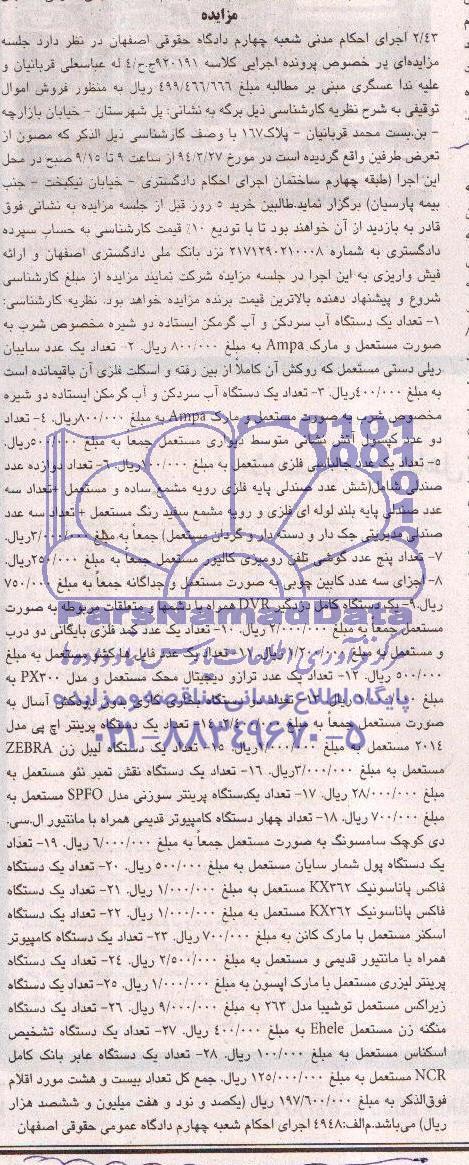 مزایده
۲/۴۳ اجرای احکام مدنی شعبه چهارم دادگاه حقوقی اصفهان در نظر دارد جلسه
مزایده‌ای در خصوص پرونده اجرایی کلاسه ۹۲۰۱۹۱ج.ح/۴ له عباسعلی قربانیان و
علیه ندا عسگری مبنی بر مطالبه مبلغ ۴۹۹/۴۶۶/۶۶۶ ریال به منظور فروش اموال
توقیفی به شرح نظریه کارشناسی ذیل برگه به نشانی: پل شهرستان - خیابان بازارچه
- بن‌بست محمد قربانیان - پلاک۱۶۷ با وصف کارشناسی ذیل الذکر که مصون از
تعرض طرفین واقع گردیده است در مورخ ۹۴/۲/۲۷ از ساعت ۹ تا ۹/۱۵ صبح در محل
این اجرا (طبقه چهارم ساختمان اجرای احکام دادگستری - خیابان نیکبخت - جنب
بیمه پارسیان) برگزار نماید.طالبین خرید ۵ روز قبل از جلسه مزایده به نشانی فوق
قادر به بازدید از آن خواهند بود تا با تودیع ۱۰٪ قیمت کارشناسی به حساب سپرده
دادگستری به شماره ۲۱۷۱۲۹۰۲۱۰۰۰۸ نزد بانک ملی دادگستری اصفهان و ارائه
فیش واریزی به این اجرا در جلسه مزایده شرکت نمایند مزایده از مبلغ کارشناسی
شروع و پیشنهاد دهنده بالاترین قیمت برنده مزایده خواهد بود. نظریه کارشناسی:
۱- تعداد یک دستگاه آب سردکن و آب گرمکن ایستاده دو شیره مخصوص شرب به
صورت مستعمل و مارک Ampa به مبلغ ۸۰۰/۰۰۰ ریال. ۲- تعداد یک عدد سایبان
ریلی دستی مستعمل که روکش آن کاملاً از بین رفته و اسکلت فلزی آن باقیمانده است
به مبلغ ۴۰۰/۰۰۰ریال. ۳- تعداد یک دستگاه آب سردکن و آب گرمکن ایستاده دو شیره
مخصوص شرب به صورت مستعمل و مارک Ampa به مبلغ ۸۰۰/۰۰۰ریال. ۴- تعداد
دو عدد کپسول آتش نشانی متوسط دیواری مستعمل جمعاً به مبلغ ۵۰۰/۰۰۰ریال.
۵- تعداد یک عدد جالباسی فلزی مستعمل به مبلغ ۷۰۰/۰۰۰ریال. ۶- تعداد دوازده عدد
صندلی شامل(شش عدد صندلی پایه فلزی رویه مشمع ساده و مستعمل +تعداد سه
عدد صندلی پایه بلند لوله ای فلزی و رویه مشمع سفید رنگ مستعمل + تعداد سه عدد
صندلی مدیریتی جک دار و دسته دار و گردان مستعمل) جمعاً به مبلغ ۳/۰۰۰/۰۰۰ریال.
۷- تعداد پنج عدد گوشی تلفن رومیزی کالیور مستعمل جمعاً به مبلغ ۲۵۰/۰۰۰ریال.
۸- اجزای سه عدد کابین چوبی به صورت مستعمل و جداگانه جمعاً به مبلغ ۷۵۰/۰۰۰
ریال.۹- یک دستگاه کامل دزدگیر DVR همراه با و متعلقات مربوطه به صورت
مستعمل جمعاً به مبلغ ۲/۰۰۰/۰۰۰ ریال. ۱۰- تعداد یک عدد کمد فلزی بایگانی دو درب
و مستعمل به مبلغ ۱/۲۰۰/۰۰۰ ریال. ۱۱- تعداد یک عدد فایل کشو مستعمل به مبلغ
۵۰۰/۰۰۰ ریال. ۱۲- تعداد یک عدد ترازو دیجیتال محک مستعمل و مدل PX۳۰۰ به
مبلغ ریال. ۱۳- تعداد دو دستگاه بخاری گازی بدون دودکش آبسال به
صورت مستعمل جمعاً به مبلغ ۱۴- تعداد یک دستگاه پرینتر اچ پی مدل
۲۰۱۴ مستعمل به مبلغ ریال. ۱۵- تعداد یک دستگاه لیبل زن ZEBRA
مستعمل به مبلغ ۳/۰۰۰/۰۰۰ریال. ۱۶- تعداد یک دستگاه نقش تمبر نئو مستعمل به
مبلغ ۲۸/۰۰۰/۰۰۰ ریال. ۱۷- تعداد یکدستگاه پرینتر سوزنی مدل SPFO مستعمل به
مبلغ ۷۰۰/۰۰۰ ریال. ۱۸- تعداد چهار دستگاه کامپیوتر قدیمی همراه با مانتیور ال.سی.
دی کوچک سامسونگ به صورت مستعمل جمعاً به مبلغ ۶/۰۰۰/۰۰۰ ریال. ۱۹- تعداد
یک دستگاه پول شمار سایان مستعمل به مبلغ ۵۰۰/۰۰۰ ریال. ۲۰- تعداد یک دستگاه
فاکس پاناسونیک KX۳۶۲ مستعمل به مبلغ ۱/۰۰۰/۰۰۰ ریال. ۲۱- تعداد یک دستگاه
فاکس پاناسونیک KX۳۶۲ مستعمل به مبلغ ۱/۰۰۰/۰۰۰ ریال. ۲۲- تعداد یک دستگاه
اسکنر مستعمل با مارک کانن به مبلغ ۷۰۰/۰۰۰ ریال. ۲۳- تعداد یک دستگاه کامپیوتر
همراه با مانتیور قدیمی و مستعمل به مبلغ ۲/۵۰۰/۰۰۰ ریال. ۲۴- تعداد یک دستگاه
پرینتر لیزری مستعمل با مارک اپسون به مبلغ ۱/۰۰۰/۰۰۰ ریال. ۲۵- تعداد یک دستگاه
زیراکس مستعمل توشیبا مدل ۲۶۳ به مبلغ ۹/۰۰۰/۰۰۰ ریال. ۲۶- تعداد یک دستگاه
منگنه زن مستعمل Ehele به مبلغ ۴۰۰/۰۰۰ ریال. ۲۷- تعداد یک دستگاه تشخیص
اسکناس مستعمل به مبلغ ۱۰۰/۰۰۰ ریال. ۲۸- تعداد یک دستگاه عابر بانک کامل
NCR مستعمل به مبلغ ۱۲۵/۰۰۰/۰۰۰ ریال. جمع کل تعداد بیست و هشت مورد اقلام
فوق‌الذکر به مبلغ ۱۹۷/۶۰۰/۰۰۰ ریال (یکصد و نود و هفت میلیون و ششصد هزار
ریال) می‌باشد.م‌الف:۴۹۴۸ اجرای احکام شعبه چهارم دادگاه عمومی حقوقی اصفهان
ParsNamadData
پایگاه اطلاع رسانی مناقصه و مزایده
۰۲۱-۸۸۳۴۹۶۷۰-۵